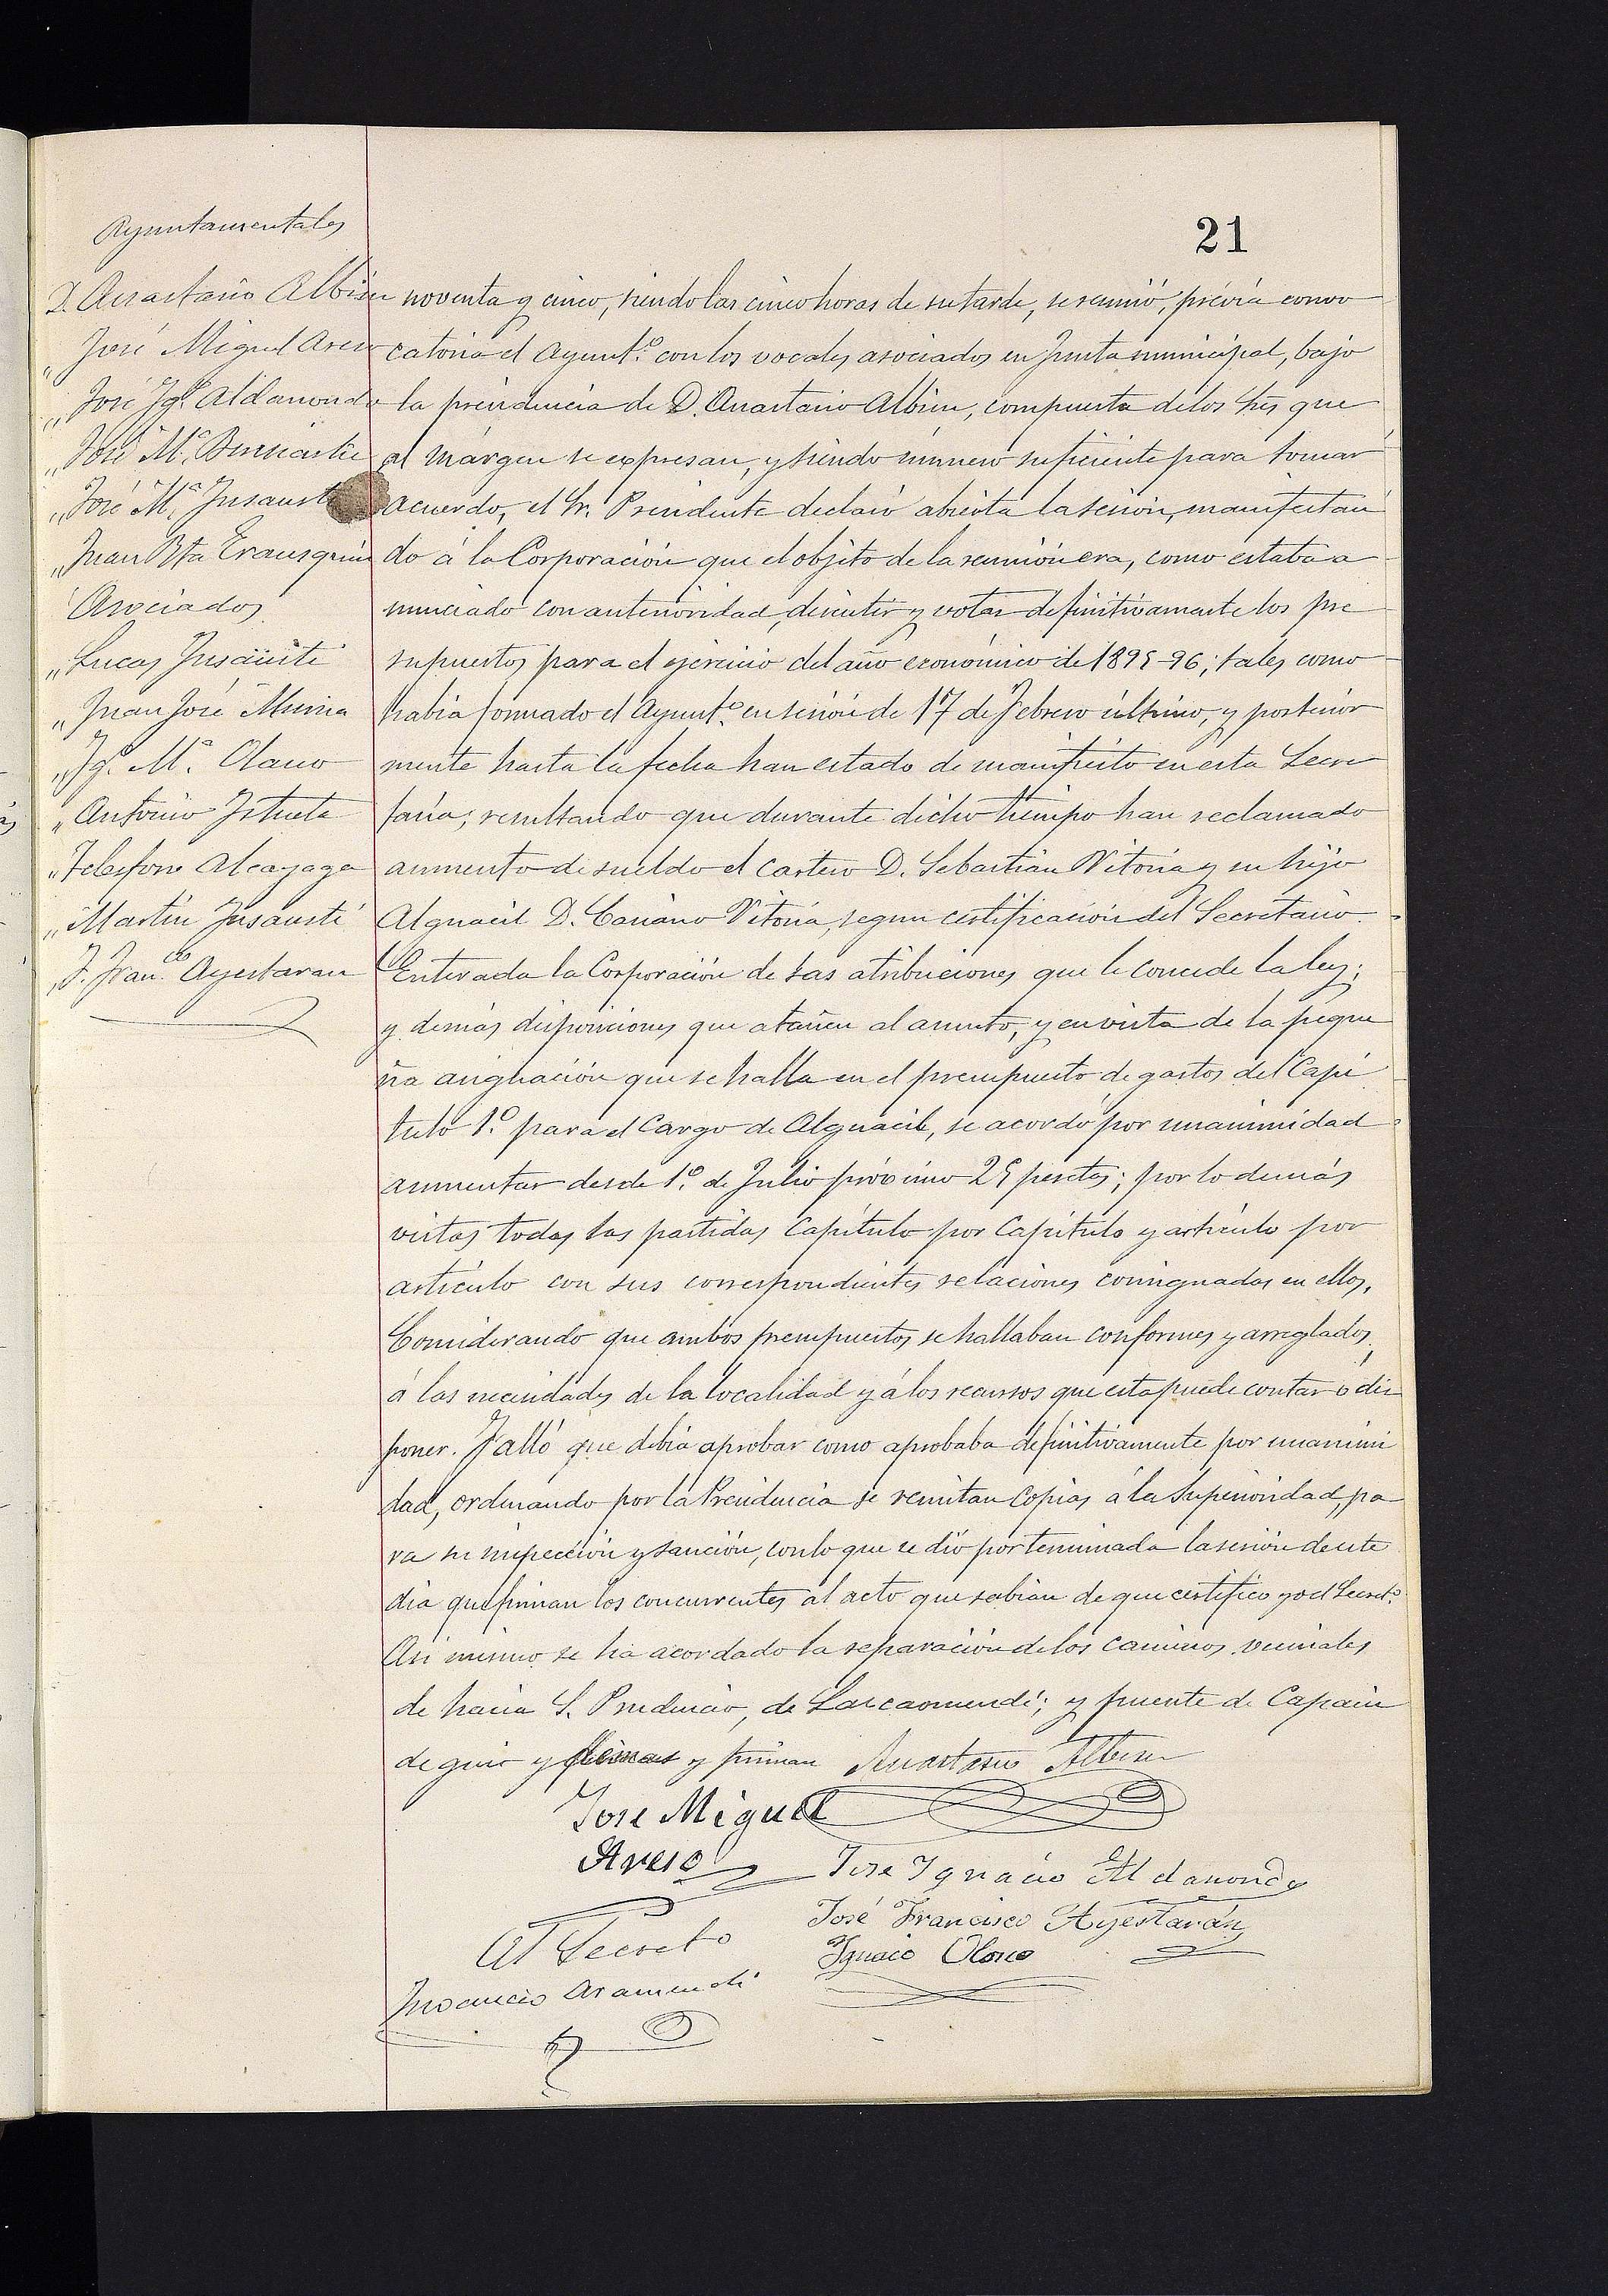 21
Ayuntamentales
D. Anastasio Albisu
„ José Miguel Areso
„ José Ygº Aldanondo
„ José Mª
„ José Mª Insausti
„ Juan Bta Erausquin
Asociados
„ Lucas Insausti
„ Juan José Munia
„ Ygº Mª Olano
„ Antonio Istueta
„ Telesforo Alcayaga
„ Martín Insausti
„ J. Franco Ayestaran
noventa y cinco, siendo las cinco horas de su tarde, se reunió, prévia convo
catoria el Ayuntº con los vocales asociados en Junta municipal, bajo
la presidencia de D. Anastasio Albisu, compuesta de los Sres que
al márgen se expresan, y siendo número suficiente para tomar
acuerdo, el Sr. Presidente declaró abierta la sesión, manifestan
do á la Corporación que el objeto de la reunión era, como estaba a
nunciado con anterioridad, discutir y votar definitivamente los pre
supuestos para el ejercicio del año económico de 1895-96; tales como
habia formado el Ayuntº en sesión de 17 de Febrero último, y posterior
mente hasta la fecha han estado de manifiesto en esta Secre
taría; resultando que durante dicho tiempo han reclamado
aumento de sueldo el cartero D. Sebastian Vitoria y su hijo
Alguacil D. Vitoria, segun certificación del Secretario.
Enterada la Corporación de las atribuciones que le concede la ley;
y demás disposiciones que atañen al asunto, y en vista de la peque
ña asignación que se halla en el presupuesto de gastos del Capí
tulo 1º para el Cargo de Alguacil, se acordó por unanimidad
aumentar desde 1º de Julio próximo 25 pesetas; por lo demás
vistas todas las partidas Capítulo por Capítulo y artículo por
artículo con sus correspondientes relaciones consignadas en ellos,
Considerando que ambos presupuestos se hallaban conformes y arreglados
á las necesidades de la localidad y á los recursos que esta puede contar ó dis
poner. Falló que debia aprobar como aprobaba definitivamente por unanimi
dad, ordenando por la Presidencia se remitan copias á la Superioridad, pa
ra su inspección y sanción, con lo que se dió por terminada la sesión de este
dia que firman los concurrentes al acto que sabian de que certifico yo el Secretº.
Asi mismo se ha acordado la reparación de los caminos vecinales
de hacia S. Prudencio, de Lazcaomendi; y puente de Capain
degui y y firman Anastasio Albisu
Jose Miguel
Areso
Jose Ygnacio Aldanondo
José Francisco Ayestarán
Ygnacio Olano
El Secreto
Inocencio Aramendi